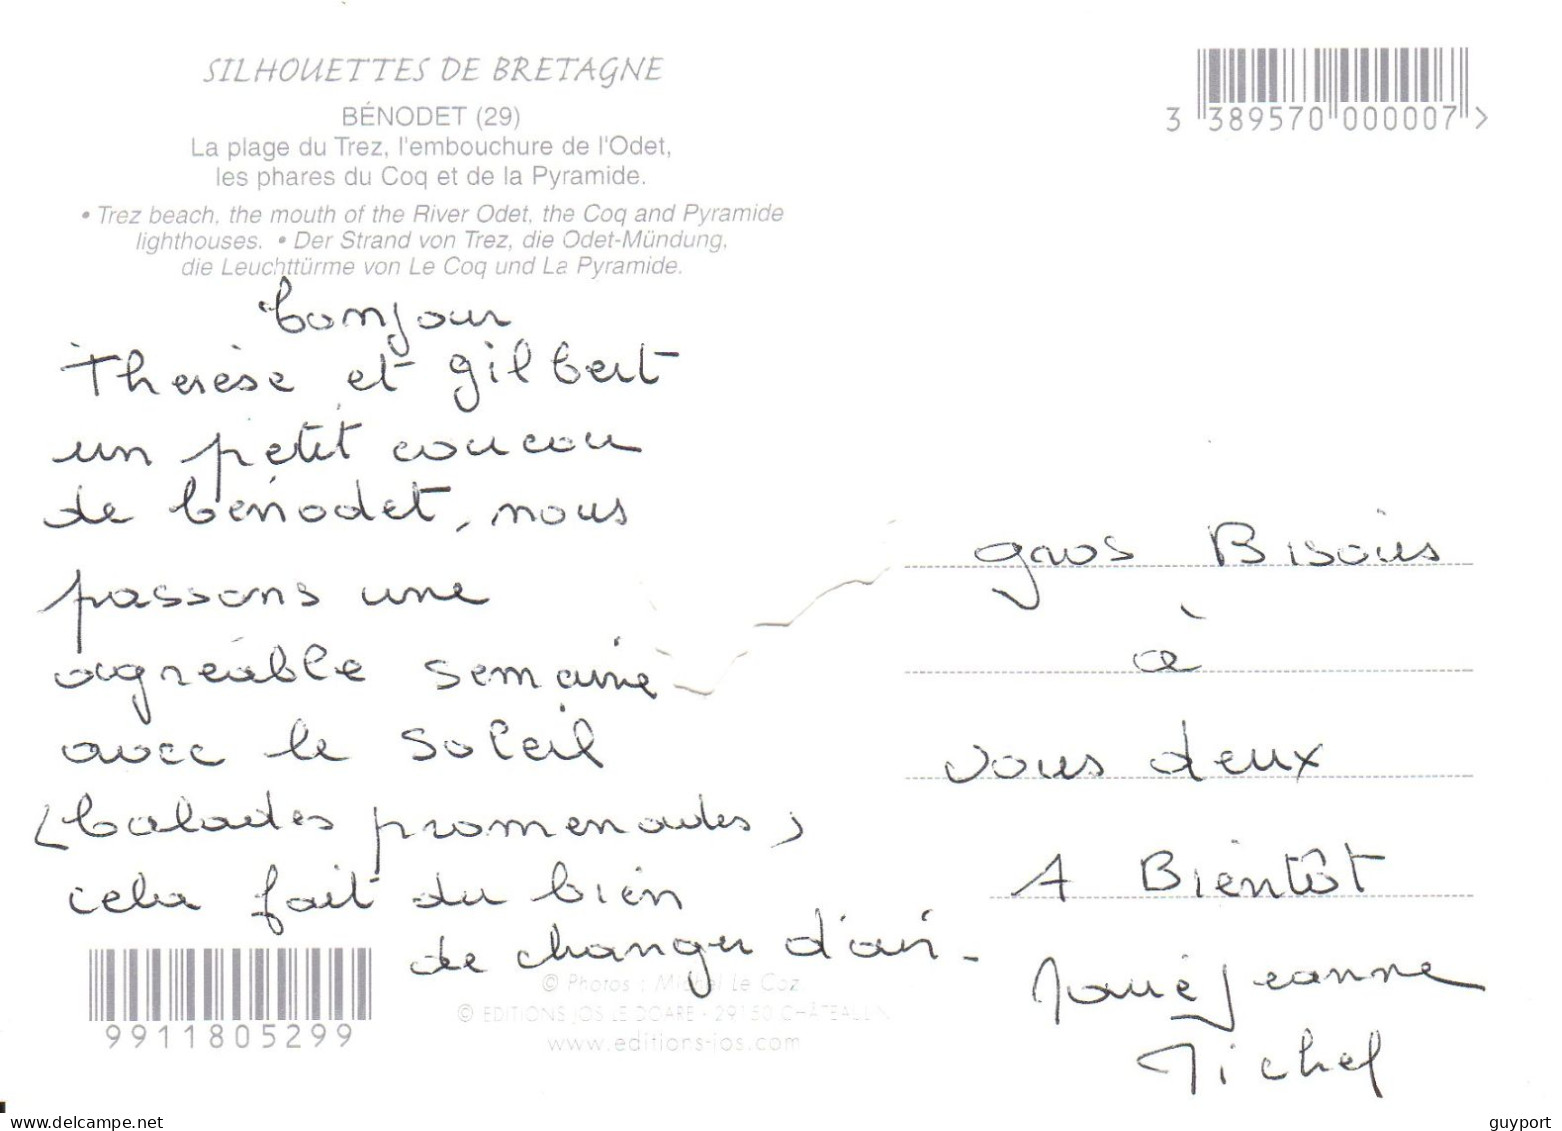 SILHOUETTES DE BRETAGNE
BÉNODET (29)
La plage du Trez, l'embouchure de l'Odet,
les phares du Coq et de la Pyramide.
• Trez beach, the mouth of the River Odet, the Coq and Pyramide
lighthouses. • Der Strand von Trez, die Odet-Mündung,
die Leuchttürme von Le Coq und La Pyramide.
3 389570 000007 >
bonjour
Thérèse et gilbert
un petit coucou
de bénodet, nous
passons une
agréable semaine
avec le soleil
(balades promenades)
cela fait du bien
de changer d'air.
gros Bisous
à
vous deux
A Bientôt
Marie Jeanne
Michel
9911805299
© Photos : Michel Le Coz
© EDITIONS JOS LE DOARE - 29150 CHÂTEAULIN
www.editions-jos.com
www.delcampe.net
guyport